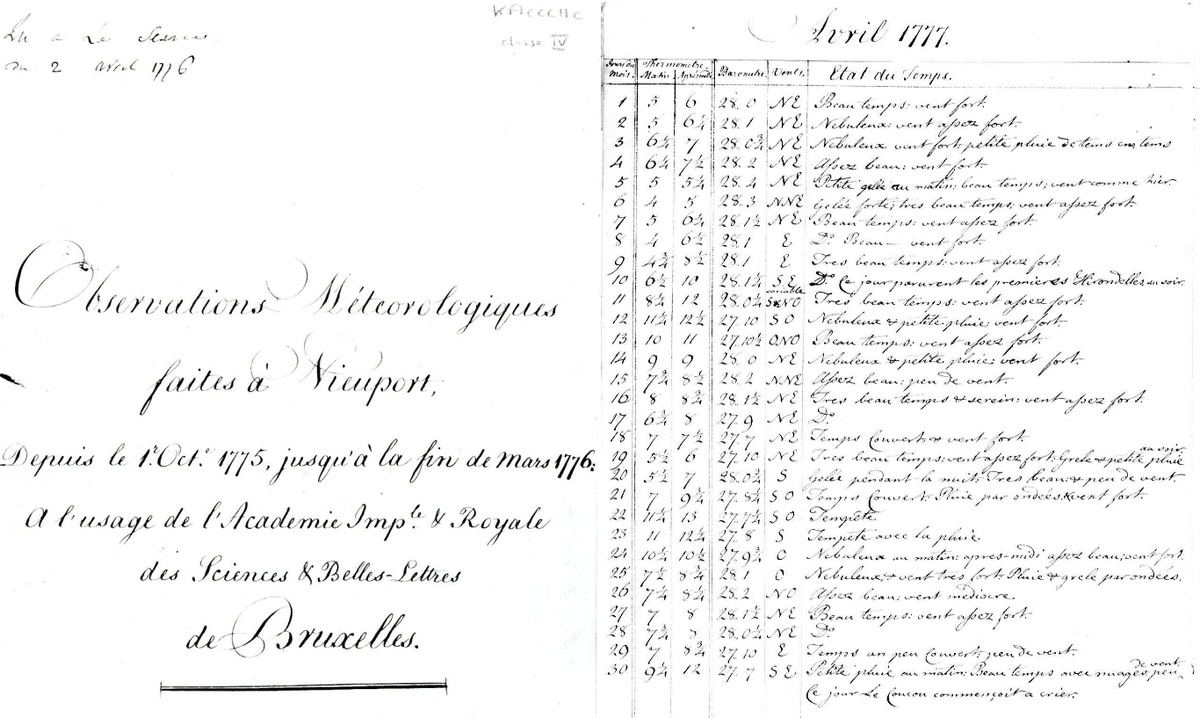 Lu a Le Seance
du 2 avril 1776
classe IV
Observations Méteorologiques
faites à Nieuport,
Depuis le 1.r Oct.e 1775, jusqu'à la fin de Mars 1776:
A l'usage de l'Academie Imp.le & Royale
des Sciences & Belles-Lettres
de Bruxelles.
Avril 1777.
Jours du Mois. Thermometre. Matin Aprèmidi Barometre. Vents. Etat du Temps.
1 5 6 28.0 NE Beau temps: vent fort.
2 5 6¼ 28.1 NE Nebuleux: vent assez fort.
3 6¼ 7 28.0¾ NE Nebuleux vent fort, petite pluie de tems en tems
4 6¼ 7½ 28.2 NE Assez beau: vent fort.
5 5 5¼ 28.4 NE Petite gelée au matin: beau temps; vent comme hier.
6 4 5 28.3 NNE Gelée forte; très beau temps; vent assez fort.
7 5 6¼ 28.1½ NE Beau temps: vent assez fort.
8 4 6½ 28.1 E D.o Beau vent fort.
9 4¾ 8½ 28.1 E Tres beau temps: vent assez fort.
10 6½ 10 28.1¼ SE D.o Ce jour parurent les premieres Hirondelles, au soir.
11 8¼ 12 28.0¼ variable NO Tres beau temps: vent assez fort.
12 11¼ 12½ 27.10 SO Nebuleux & petite pluie: vent fort.
13 10 11 27.10½ ONO Beau temps: vent assez fort.
14 9 9 28.0 NE Nebuleux & petite pluie: vent fort.
15 7¾ 8½ 28.2 NNE Assez beau: peu de vent.
16 8 8¾ 28.1½ NE Tres beau temps & serein: vent assez fort.
17 6¾ 8 27.9 NE D.o
18 7 7½ 27.7 NE Temps Couvert & vent fort.
19 5½ 6 27.10 NE Tres beau temps: vent assez fort. Grele & petite pluie au soir.
20 5½ 7 28.0½ S Gelée pendant la nuit. Tres beau & peu de vent.
21 7 9¾ 27.8¼ SO Temps Couvert. Pluie par ondées & vent fort.
22 11½ 13 27.7½ SO Tempête
23 11 12¼ 27.8 S Tempête avec la pluie.
24 10½ 10½ 27.9¾ O Nebuleux au matin: apres-midi assez beau; vent fort.
25 7½ 8¾ 28.1 O Nebuleux, & vent très fort. Pluie & grele par ondées.
26 7¼ 8¼ 28.2 NO Assez beau: vent mediocre.
27 7 8 28.1½ NE Beau temps: vent assez fort.
28 7¼ 28.0½ NE D.o
29 7 8¾ 27.10 E Temps un peu Couvert: peu de vent.
30 9¼ 12 27.7 SE Petite pluie au matin: Beau temps avec nuages, peu de vent.
Ce jour Le Coucou commençoit a crier.